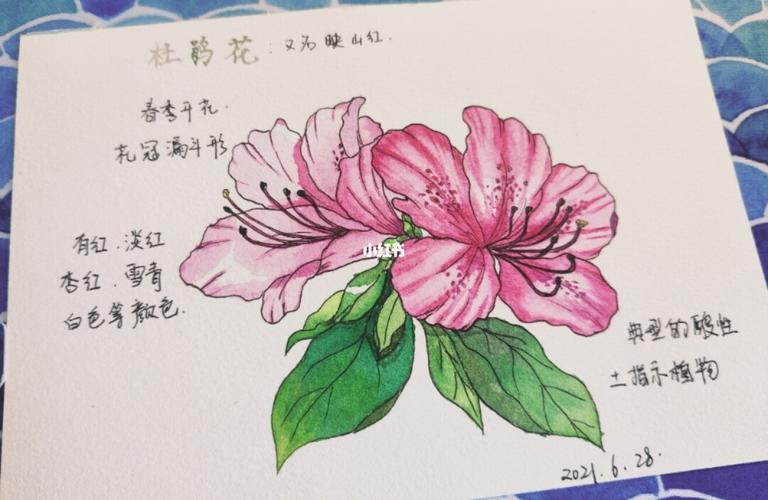 杜鹃花：又为映山红.
春季开花.
花冠漏斗形
有红.淡红
杏红.雪青
白色等颜色.
小红书
典型的酸性
土指示植物
2021.6.28.